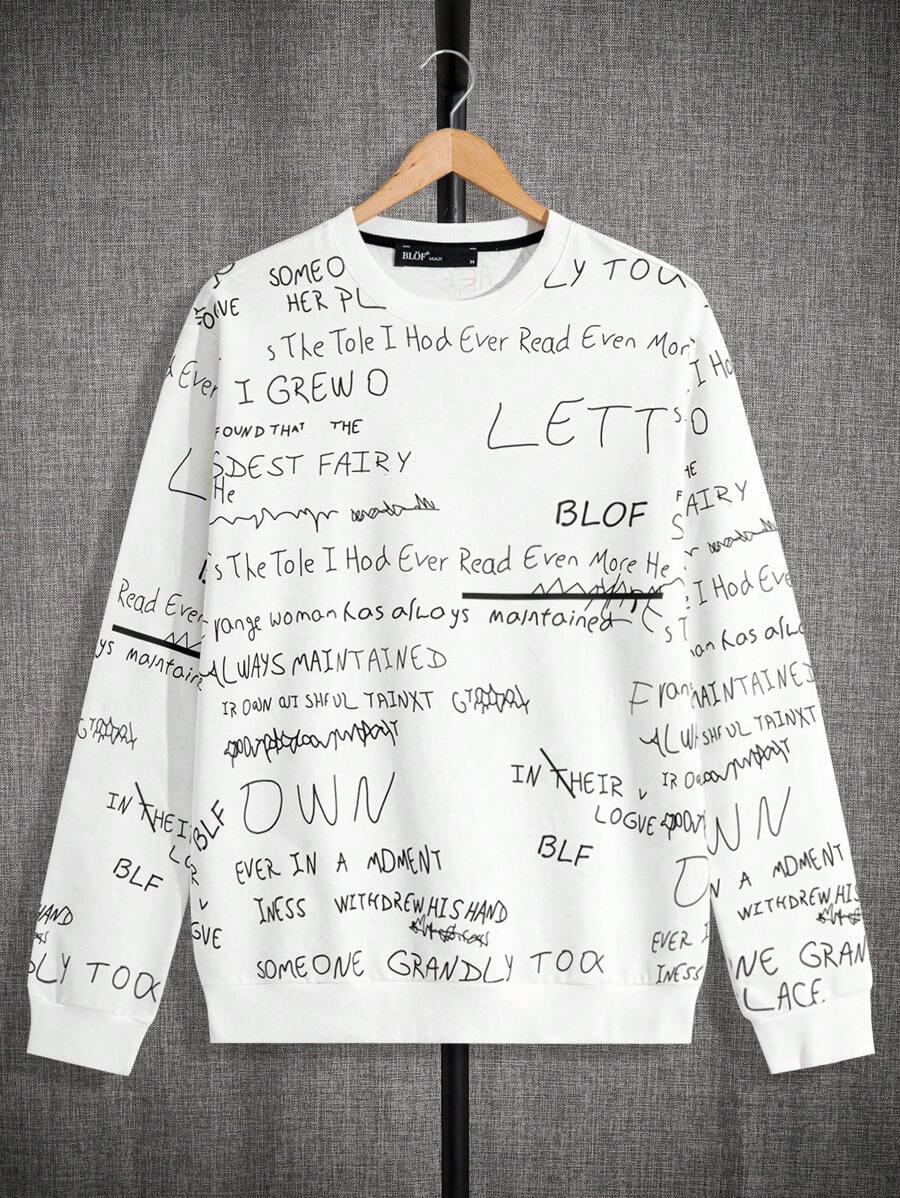 BLÖF MAN M
SOMEO
LY TOO
HER PL
s The Tole I Hod Ever Read Even Mor
d Ever
I Ho
I GREW O
LETT
s.
O
FOUND THAT THE
L
SDEST FAIRY
He
HE
FAIRY
S
BLOF
s The Tole I Hod Ever Read Even More He
I Hod Eve
Read Even
range woman has alloys maintained
s T
an has allo
ys maintain
ALWAYS MAINTAINED
Fran
MAINTAINED
IR OWN OUT SHFUL TAINXT
ALW
SHFUL TAINXT
IR O
OWN
IN THEIR v
LOGVE
WN
IN THEI
BLF
EVER IN A MOMENT
BLF
O
N A MOMENT
BLF
v
INESS WITHDREW HIS HAND
WITHDREW HIS
HAND
GVE
EVER I
SOMEONE GRANDLY TOOK
INESS
NE GRAN
LY TOOK
LACE.